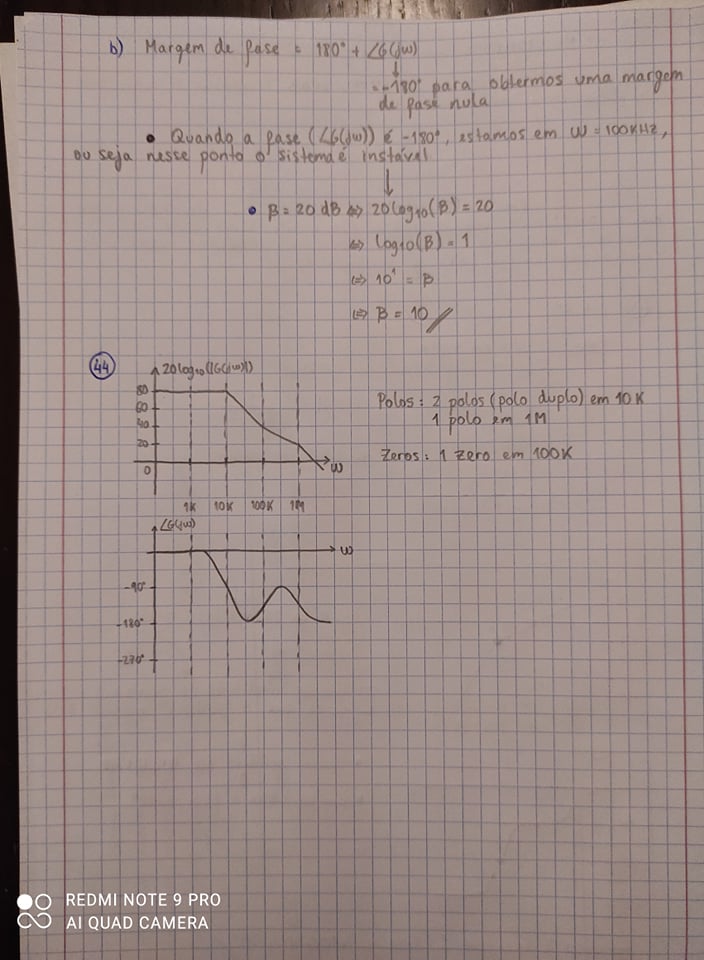 b) Margem de fase = 180° + ∠G(jw)
= -180° para obtermos uma margem
de fase nula
• Quando a fase (∠G(jw)) é -180°, estamos em W = 100KHz,
ou seja nesse ponto o sistema é instável
• β = 20 dB ⇔ 20log₁₀(β) = 20
⇔ log₁₀(β) = 1
⇔ 10¹ = β
⇔ β = 10
44
20log₁₀(|G(jw)|)
80
60
40
20
0
W
1K 10K 100K 1M
Polos: 2 polos (polo duplo) em 10K
1 polo em 1M
Zeros: 1 zero em 100K
∠G(jw)
W
-90°
-180°
-270°
REDMI NOTE 9 PRO
AI QUAD CAMERA